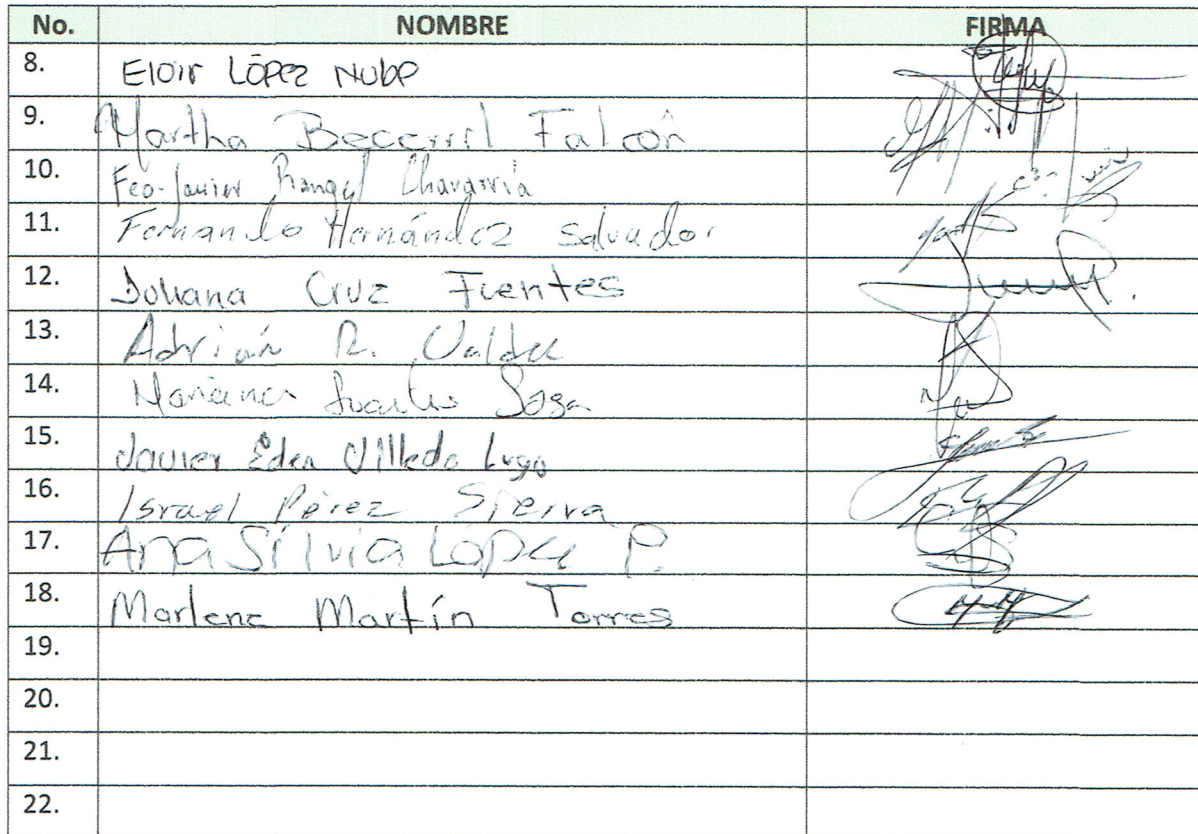 No. NOMBRE FIRMA
8. Eloir López Nube
9. Martha Becerril Falcón
10. Fco. Javier Rangel Chavarría
11. Fernando Hernández Salvador
12. Juliana Cruz Fuentes
13. Adrián R. Valdez
14. Mariana Sosa
15. Javier Eden Villeda Lugo
16. Israel Pérez Sierra
17. Ana Silvia López P.
18. Marlene Martín Torres
19.
20.
21.
22.